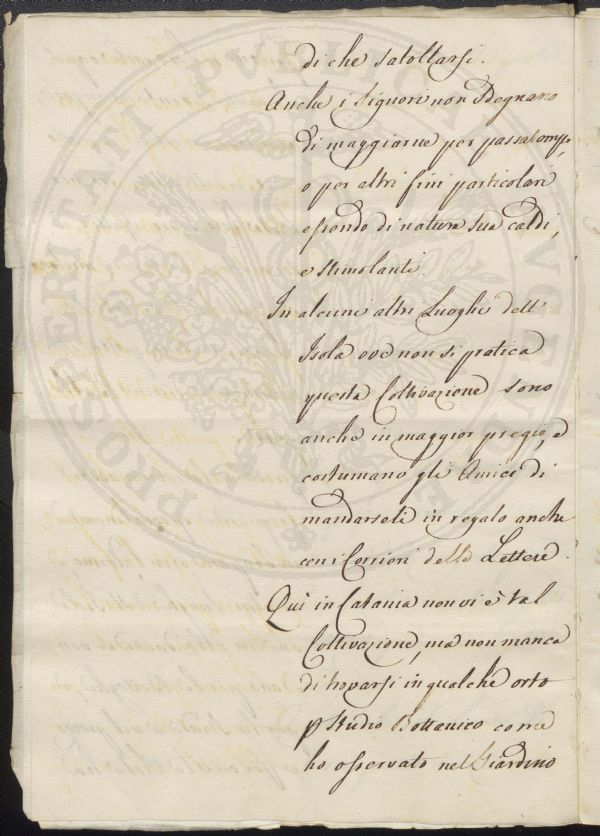 di che satollarsi.
Anche i Signori non Degnano
di maggiarne per passatempo,
o per altri fini particolari
essendo di natura sua caldi,
e stimolanti.
In alcuni altri Luoghi dell
Isola ove non si pratica
questa Coltivazione sono
anche in maggior pregio, e
costumano gli Amici di
mandarseli in regalo anche
con i Corrieri delle Lettere.
Quì in Catania non vi è tal
Coltivazione, ma non manca
di trovarsi in qualche orto
p Studio Bottanico come
ho osservato nel Giardino
PROSPERITATI PVBLICAE AVGENDAE